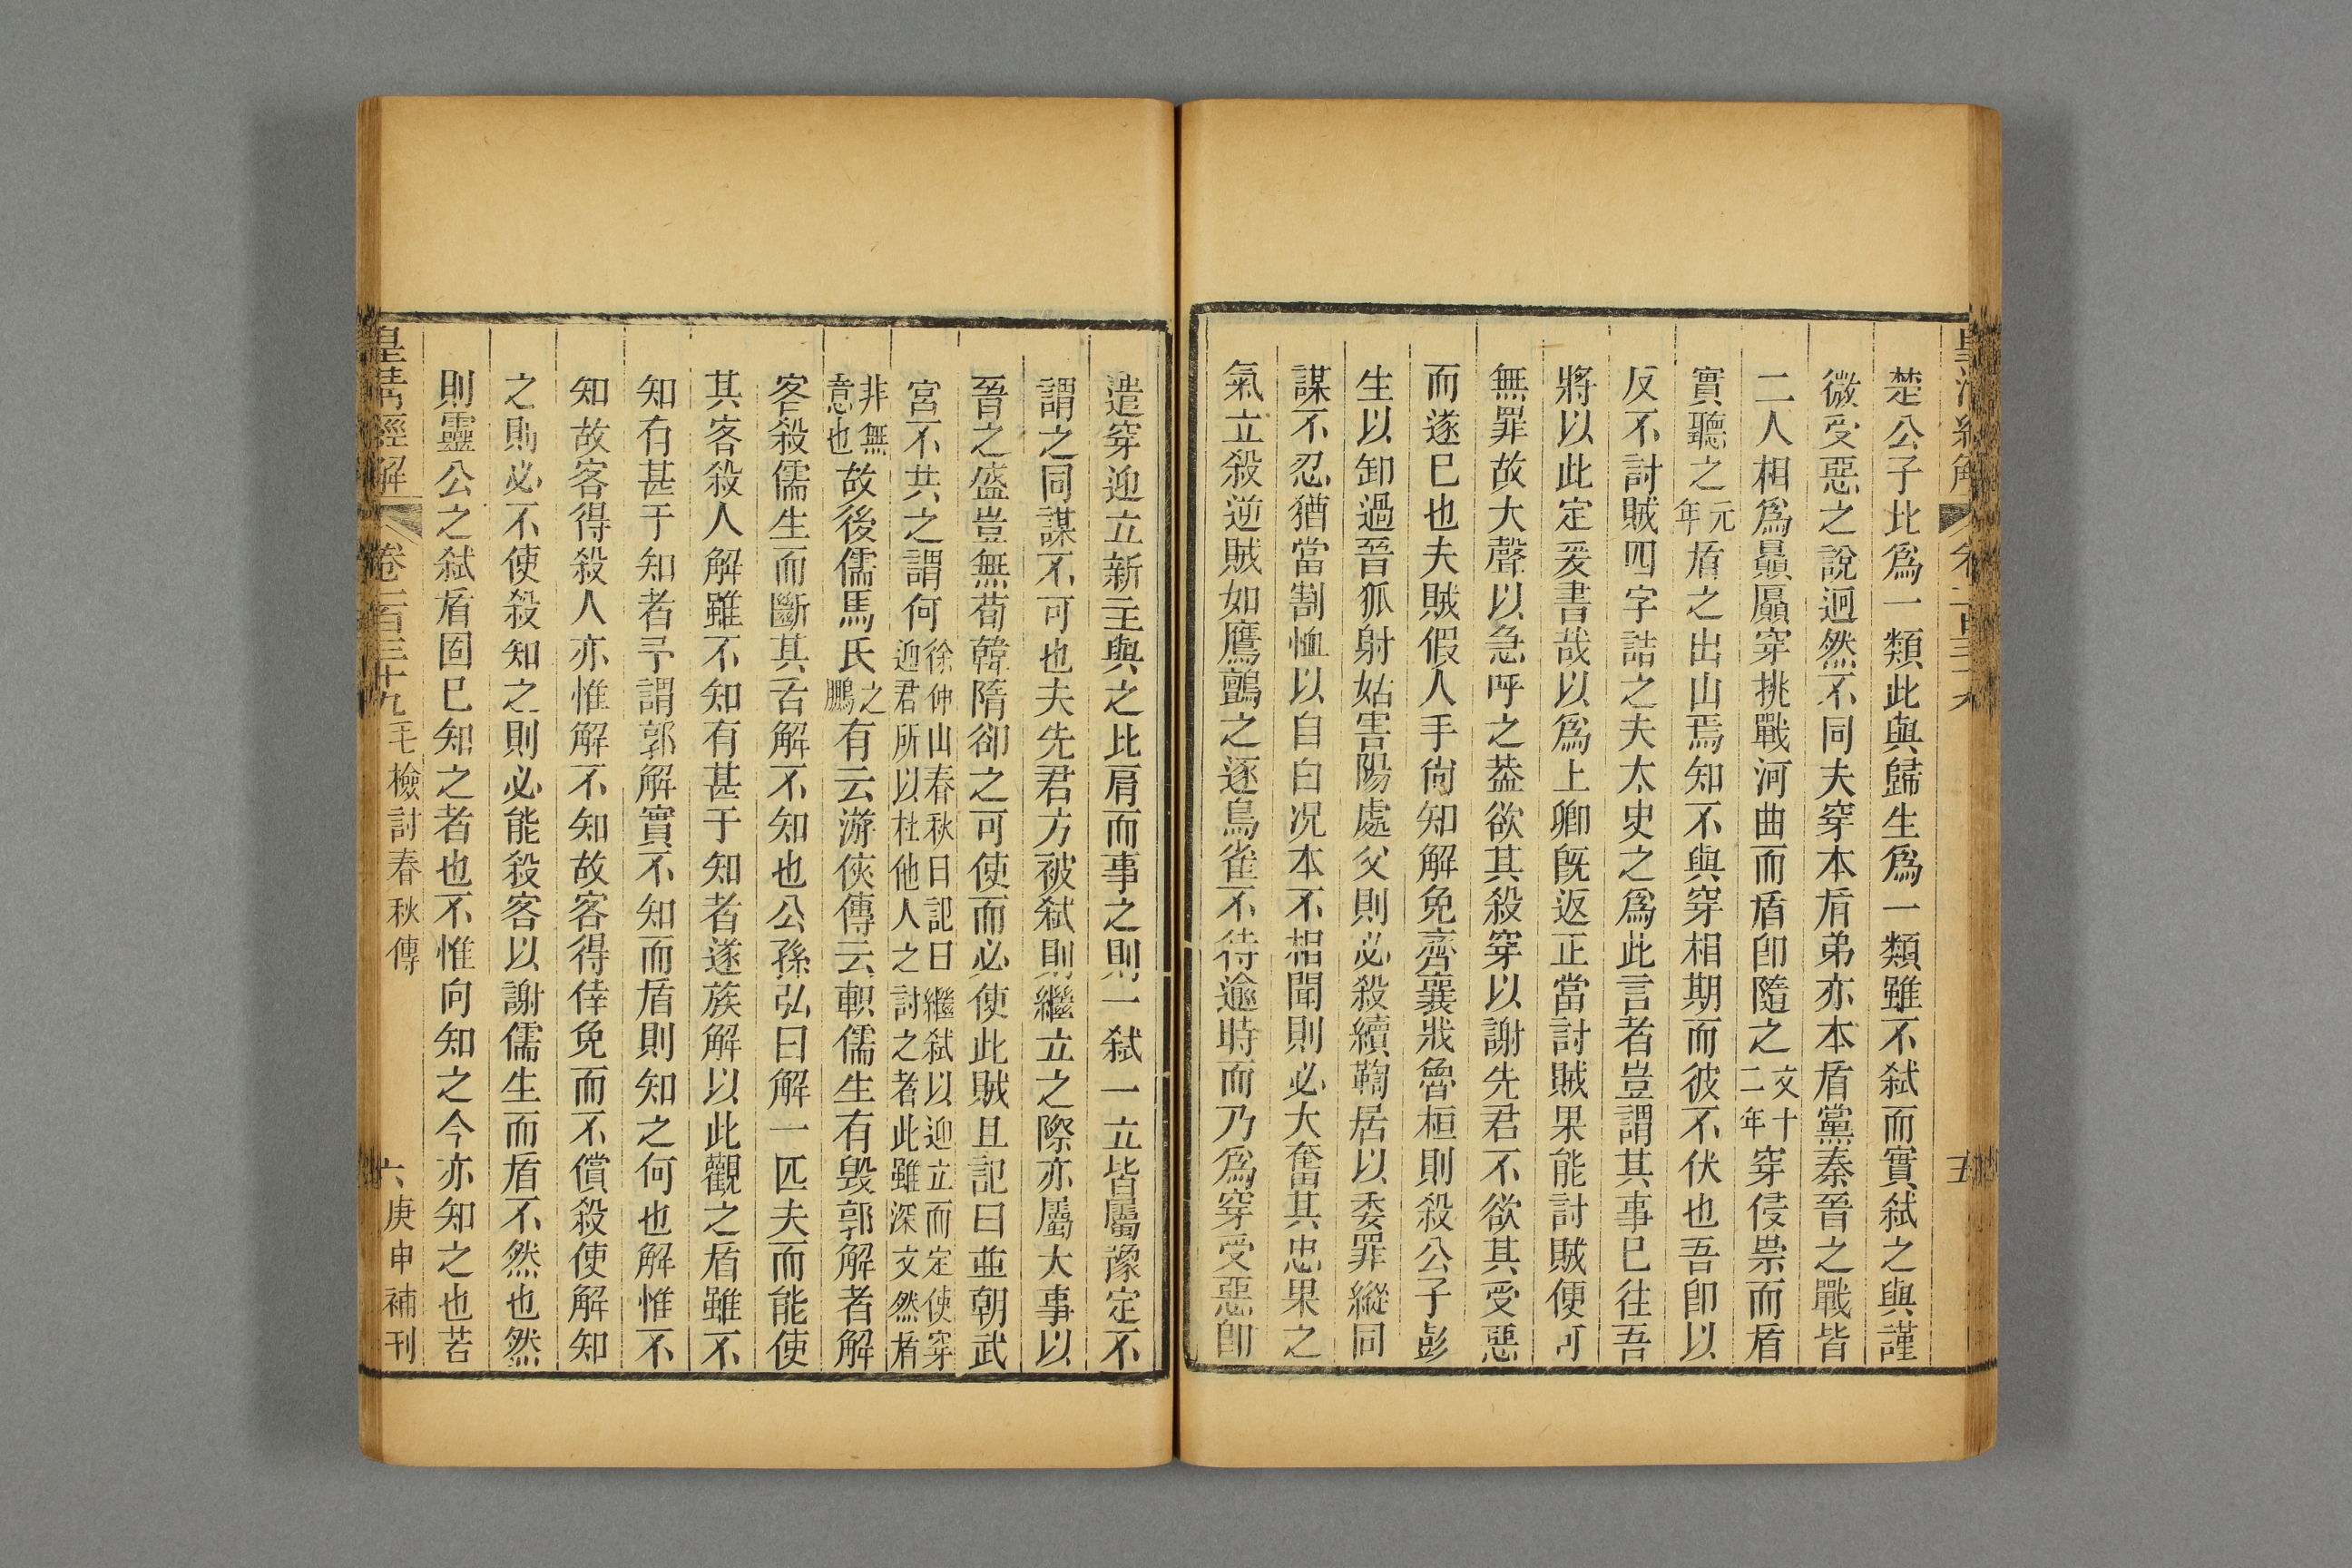 楚公子比爲一類此與歸生爲一類雖不弑而實弑之與謹
微受惡之說迥然不同夫穿本盾弟亦本盾黨秦晉之戰皆
二人相爲贔屭穿挑戰河曲而盾卽隨之文十二年穿侵崇而盾
實聽之元年盾之出山焉知不與穿相期而彼不伏也吾卽以
反不討賊四字詰之夫太史之爲此言者豈謂其事已往吾
將以此定爰書哉以爲上卿旣返正當討賊果能討賊便可
無罪故大聲以急呼之葢欲其殺穿以謝先君不欲其受惡
而遂已也夫賊假人手尙知解免齊襄戕魯桓則殺公子彭
生以卸過晉狐射姑害陽處父則必殺續鞫居以委罪縱同
謀不忍猶當割恤以自白况本不相聞則必大奮其忠果之
氣立殺逆賊如鷹鸇之逐鳥雀不待逾時而乃爲穿受惡卽
遣穿迎立新主與之比肩而事之則一弑一立皆屬豫定不
謂之同謀不可也夫先君方被弑則繼立之際亦屬大事以
晉之盛豈無荀韓隋郤之可使而必使此賊且記曰並朝武
宮不共之謂何徐仲山春秋日記曰繼弑以迎立而定使穿迎君所以杜他人之討之者此雖深文然盾
非無意也故後儒馬氏之鵬有云游俠傳云軹儒生有毀郭解者解
客殺儒生而斷其舌解不知也公孫弘曰解一匹夫而能使
其客殺人解雖不知有甚于知者遂族解以此觀之盾雖不
知有甚于知者予謂郭解實不知而盾則知之何也解惟不
知故客得殺人亦惟解不知故客得倖免而不償殺使解知
之則必不使殺知之則必能殺客以謝儒生而盾不然也然
則靈公之弑盾固已知之者也不惟向知之今亦知之也苦
皇清經解 卷一百三十九 毛檢討春秋傳 六 庚申補刊